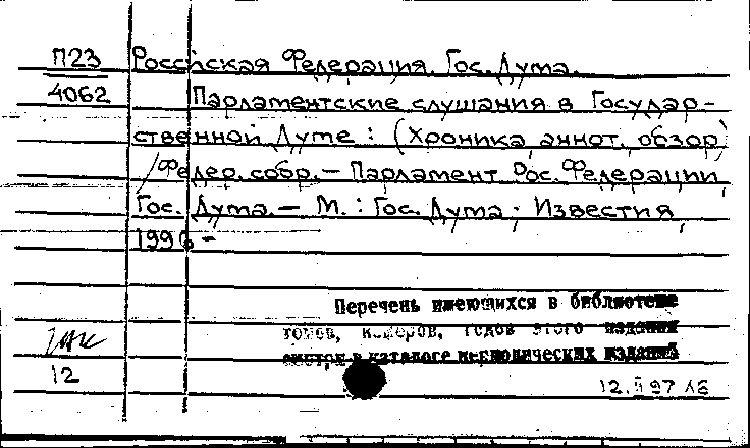 П23 Российская Федерация. Гос. Дума.
4062 Парламентские слушания в Государ-
ственной Думе : (Хроника, аннот. обзор)
/Федер. собр. – Парламент Рос. Федерации,
Гос. Дума. – М. : Гос. Дума ; Известия,
1996 –
Перечень имеющихся в библиотеке
томов, номеров, годов этого издания
смотри в каталоге периодических изданий
12
12. II 97